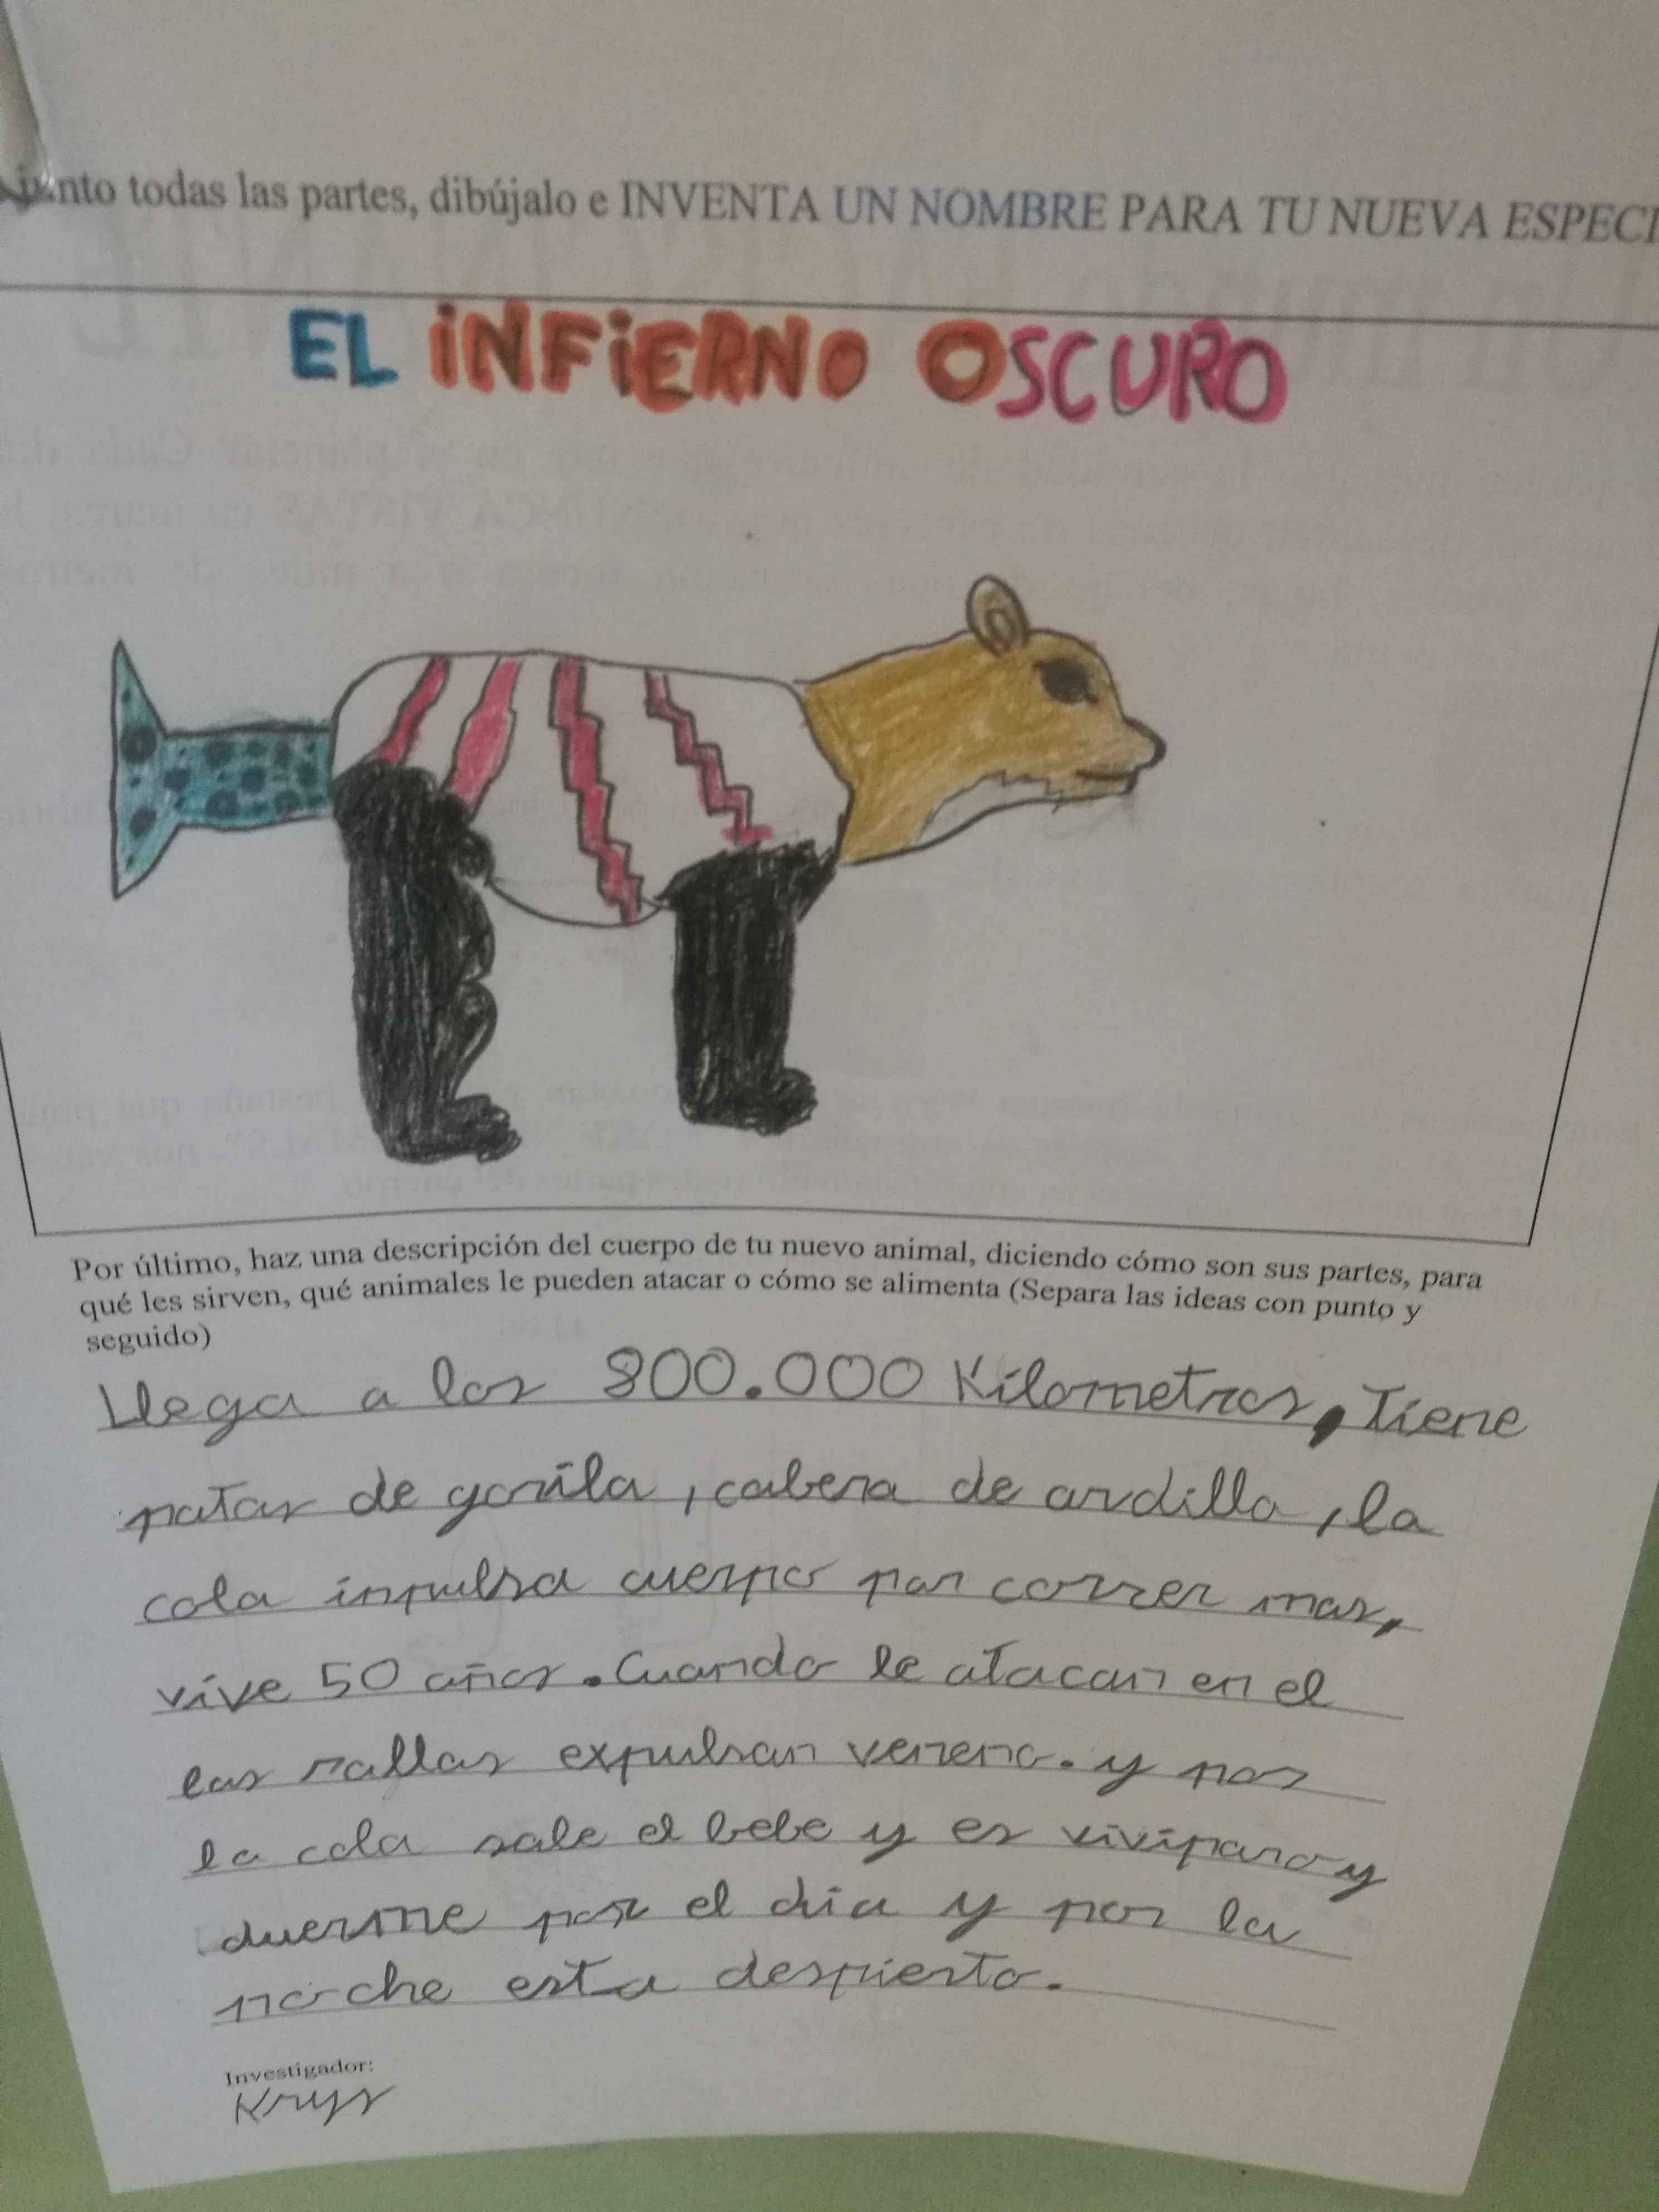 junto todas las partes, dibújalo e INVENTA UN NOMBRE PARA TU NUEVA ESPECI
EL INFIERNO OSCURO
Por último, haz una descripción del cuerpo de tu nuevo animal, diciendo cómo son sus partes, para
qué les sirven, qué animales le pueden atacar o cómo se alimenta (Separa las ideas con punto y
seguido)
Llega a los 800.000 Kilometros, Tiene
patas de gorila, cabeza de ardilla, la
cola inpulsa cuerpo par correr mas,
vive 50 años. Cuando le atacan en el
las rallas expulsan veneno. y por
la cola sale el bebe y es viviparo y
duerme por el dia y por la
noche esta despierto.
Investigador:
Krys